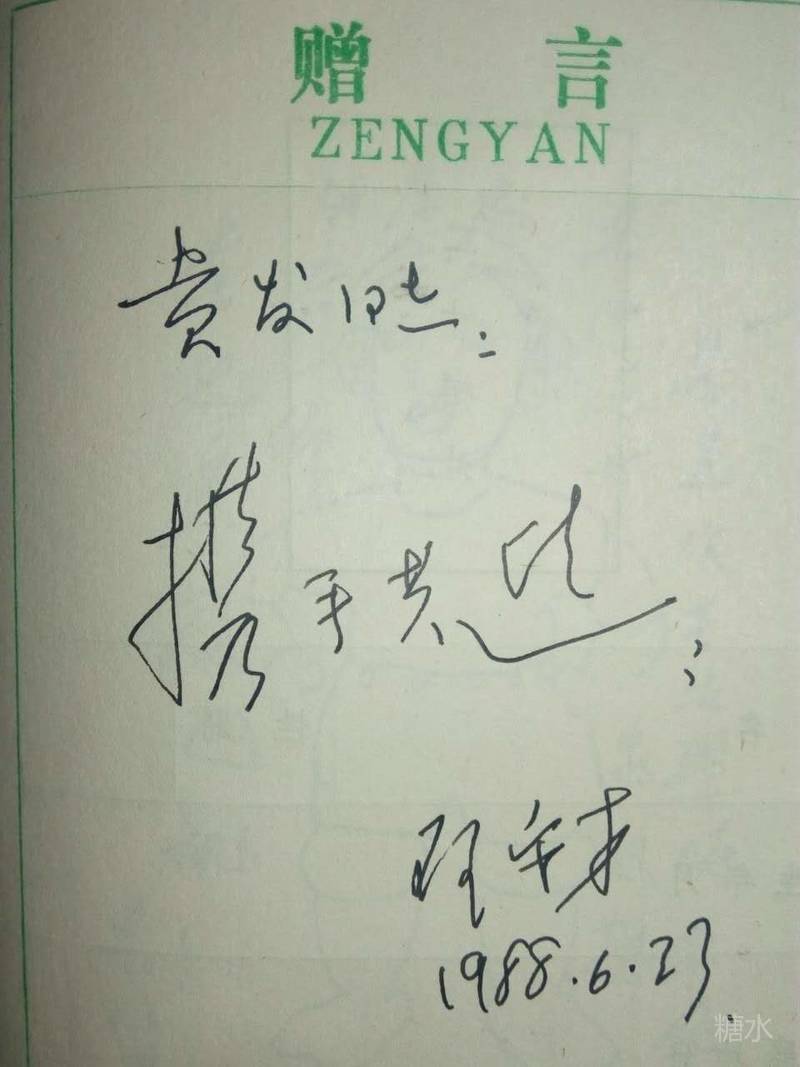 赠言
ZENGYAN
贵发同志：
携手共进
1988.6.23
糖水